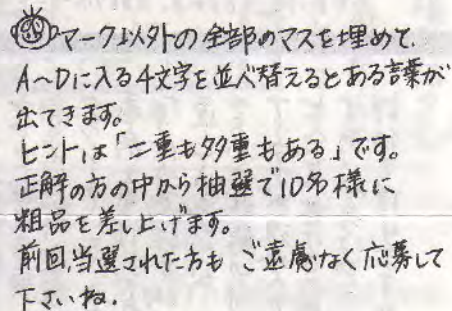 マーク以外の全部のマスを埋めて、
A～Dに入る4文字を並べ替えるとある言葉が
出てきます。
ヒントは「二重も多重もある」です。
正解の方の中から抽選で10名様に
粗品を差し上げます。
前回、当選された方も ご遠慮なく応募して
下さいね。